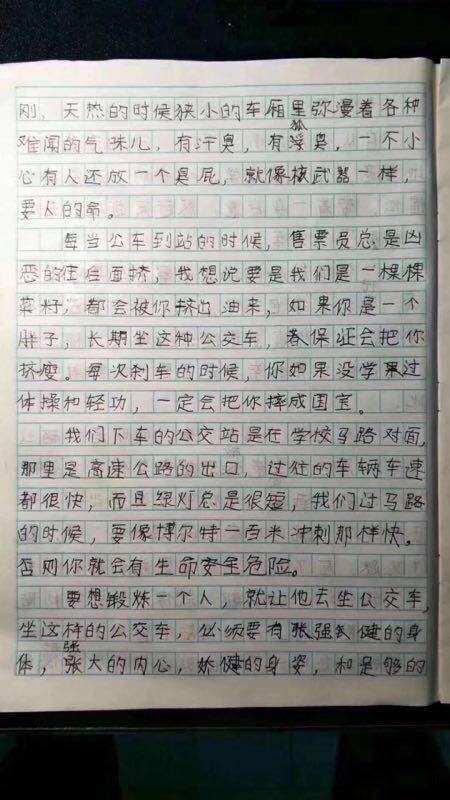 刚，天热的时候狭小的车厢里弥漫着各种
狐
难闻的气味儿，有汗臭，有淫臭，一不小
心有人还放一个臭屁，就像核武器一样，
要人的命。
每当公车到站的时候，售票员总是凶
恶的往后面挤，我想说要是我们是一棵棵
菜籽，都会被你挤出油来，如果你是一个
胖子，长期坐这种公交车，春保证会把你
挤瘦。每次刹车的时候，你如果没学过
体操和轻功，一定会把你摔成国宝。
我们下车的公交站是在学校马路对面，
那里是高速公路的出口，过往的车辆车速
都很快，而且绿灯总是很短，我们过马路
的时候，要像博尔特一百米冲刺那样快。
否则你就会有生命安全危险。
要想锻炼一个人，就让他去坐公交车，
坐这样的公交车，必须要有张强劲健的身
强
体，张大的内心，矫健的身姿，和足够的